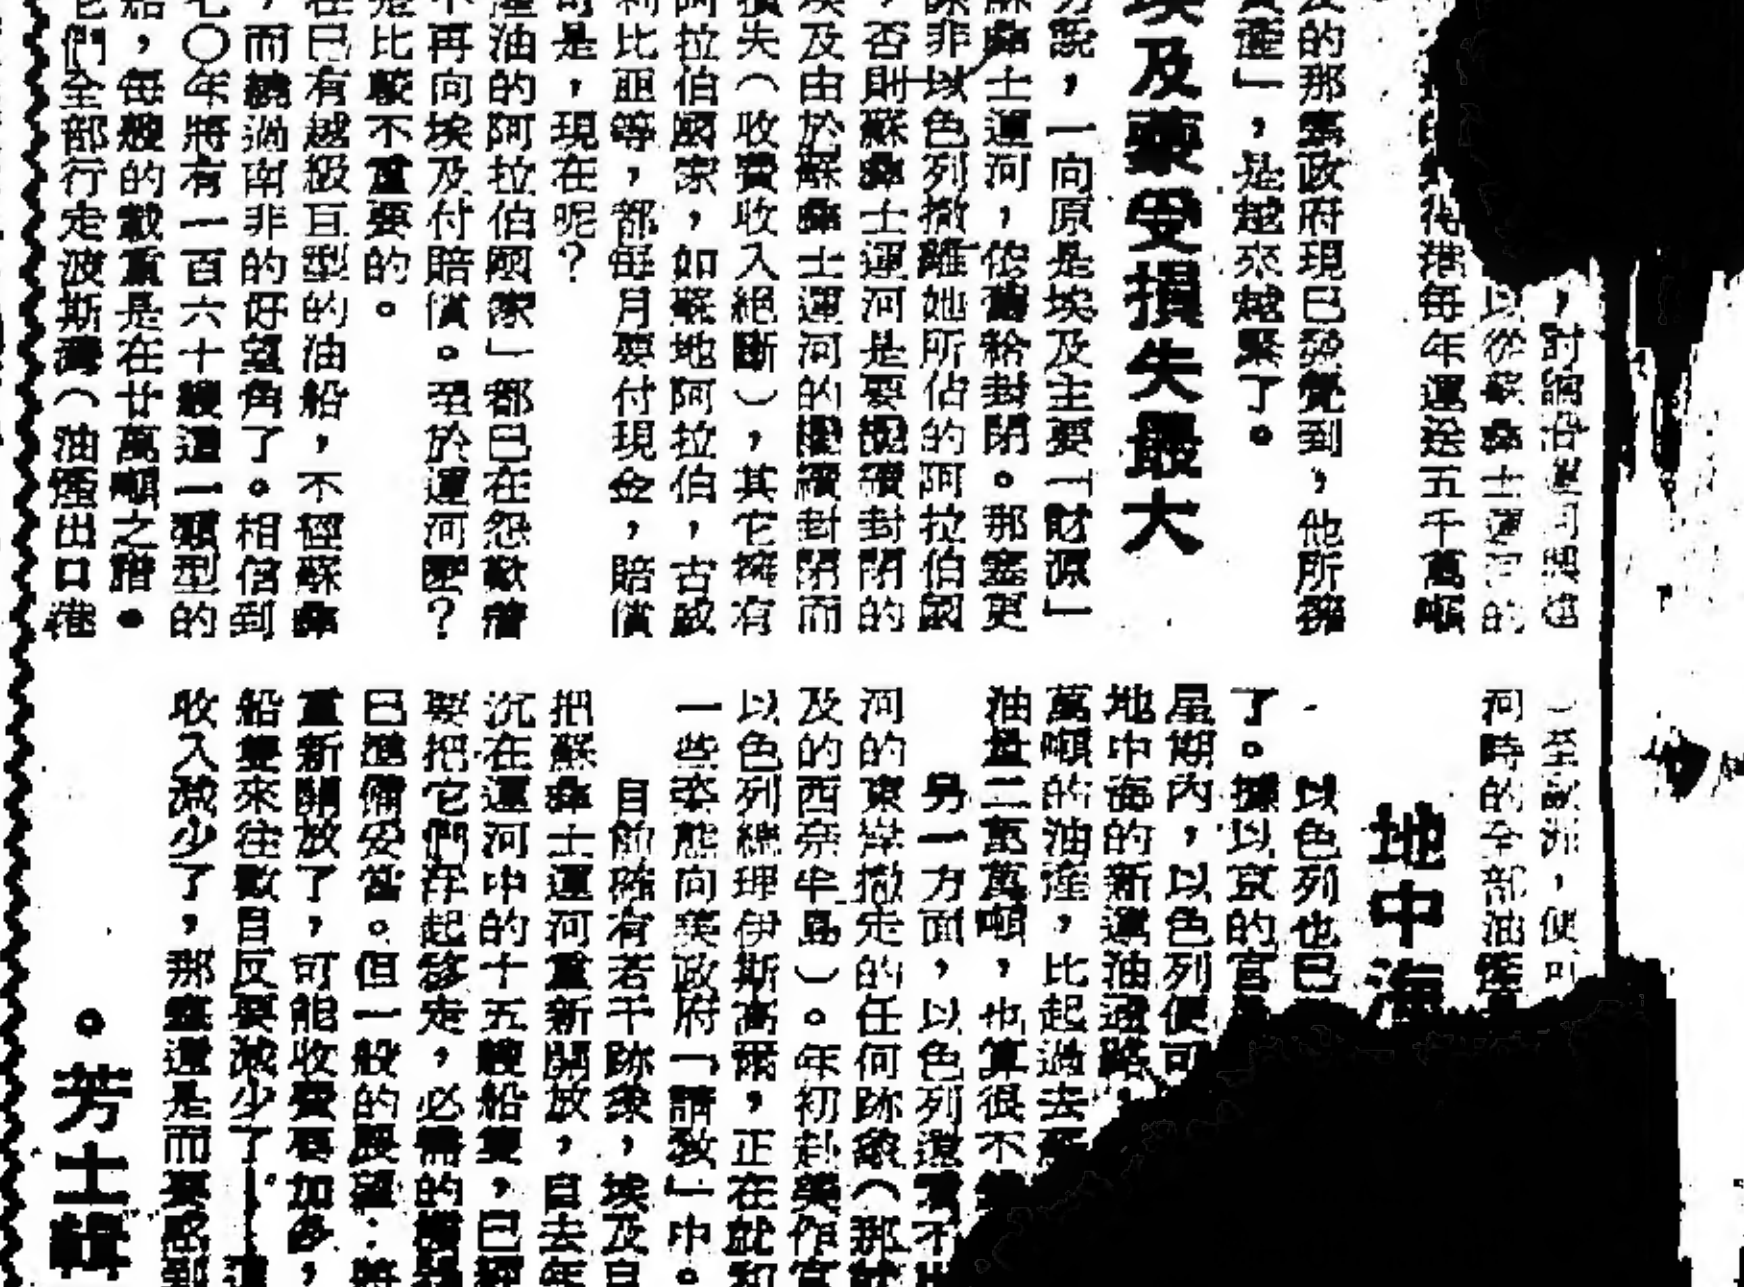 ，討論沿運河興建
以從蘇彝士運河的
得港每年運送五千萬噸
的那塞政府現已發覺到，他所擁
產」，是越來越緊了。
埃及蒙受損失最大
說，一向原是埃及主要「財源」
彝士運河，依舊給封閉。那塞更
非以色列撤離她所佔的阿拉伯國
，否則蘇彝士運河是要繼續封閉的
埃及由於蘇彝士運河的繼續封閉而
損失（收費收入絕斷），其它擁有
阿拉伯國家，如蘇地阿拉伯，古威
利比亞等，都每月要付現金，賠償
可是，現在呢？
產油的阿拉伯國家」都已在怨歎着
不再向埃及付賠償。至於運河呢？
是比較不重要的。
在已有越級巨型的油船，不經蘇彝
，而繞過南非的好望角了。相信到
七〇年將有一百六十艘這一類型的
船，每艘的載重是在廿萬噸之譜。
它們全部行走波斯灣（油產出口港
）至歐洲，便可
河時的全部油產
地中海
以色列也已
了。據以京的官
星期內，以色列便可
地中海的新運油通路，
萬噸的油產，比起過去
油量二百萬噸，也算很不
另一方面，以色列還看不出
河的東岸撤走的任何跡象（那就
及的西奈半島）。年初赴美作官
以色列總理伊斯高爾，正在就和
一些事態向美政府「請教」中。
目前確有若干跡象，埃及自
把蘇彝士運河重新開放，自去年
沉在運河中的十五艘船隻，已經
要把它們存起移走，必需的
已準備妥當。但一般的展望：將
重新開放了，可能收費要加多，
船隻來往數目反要減少了——這
收入減少了，那塞還是而要感到
。芳士輯